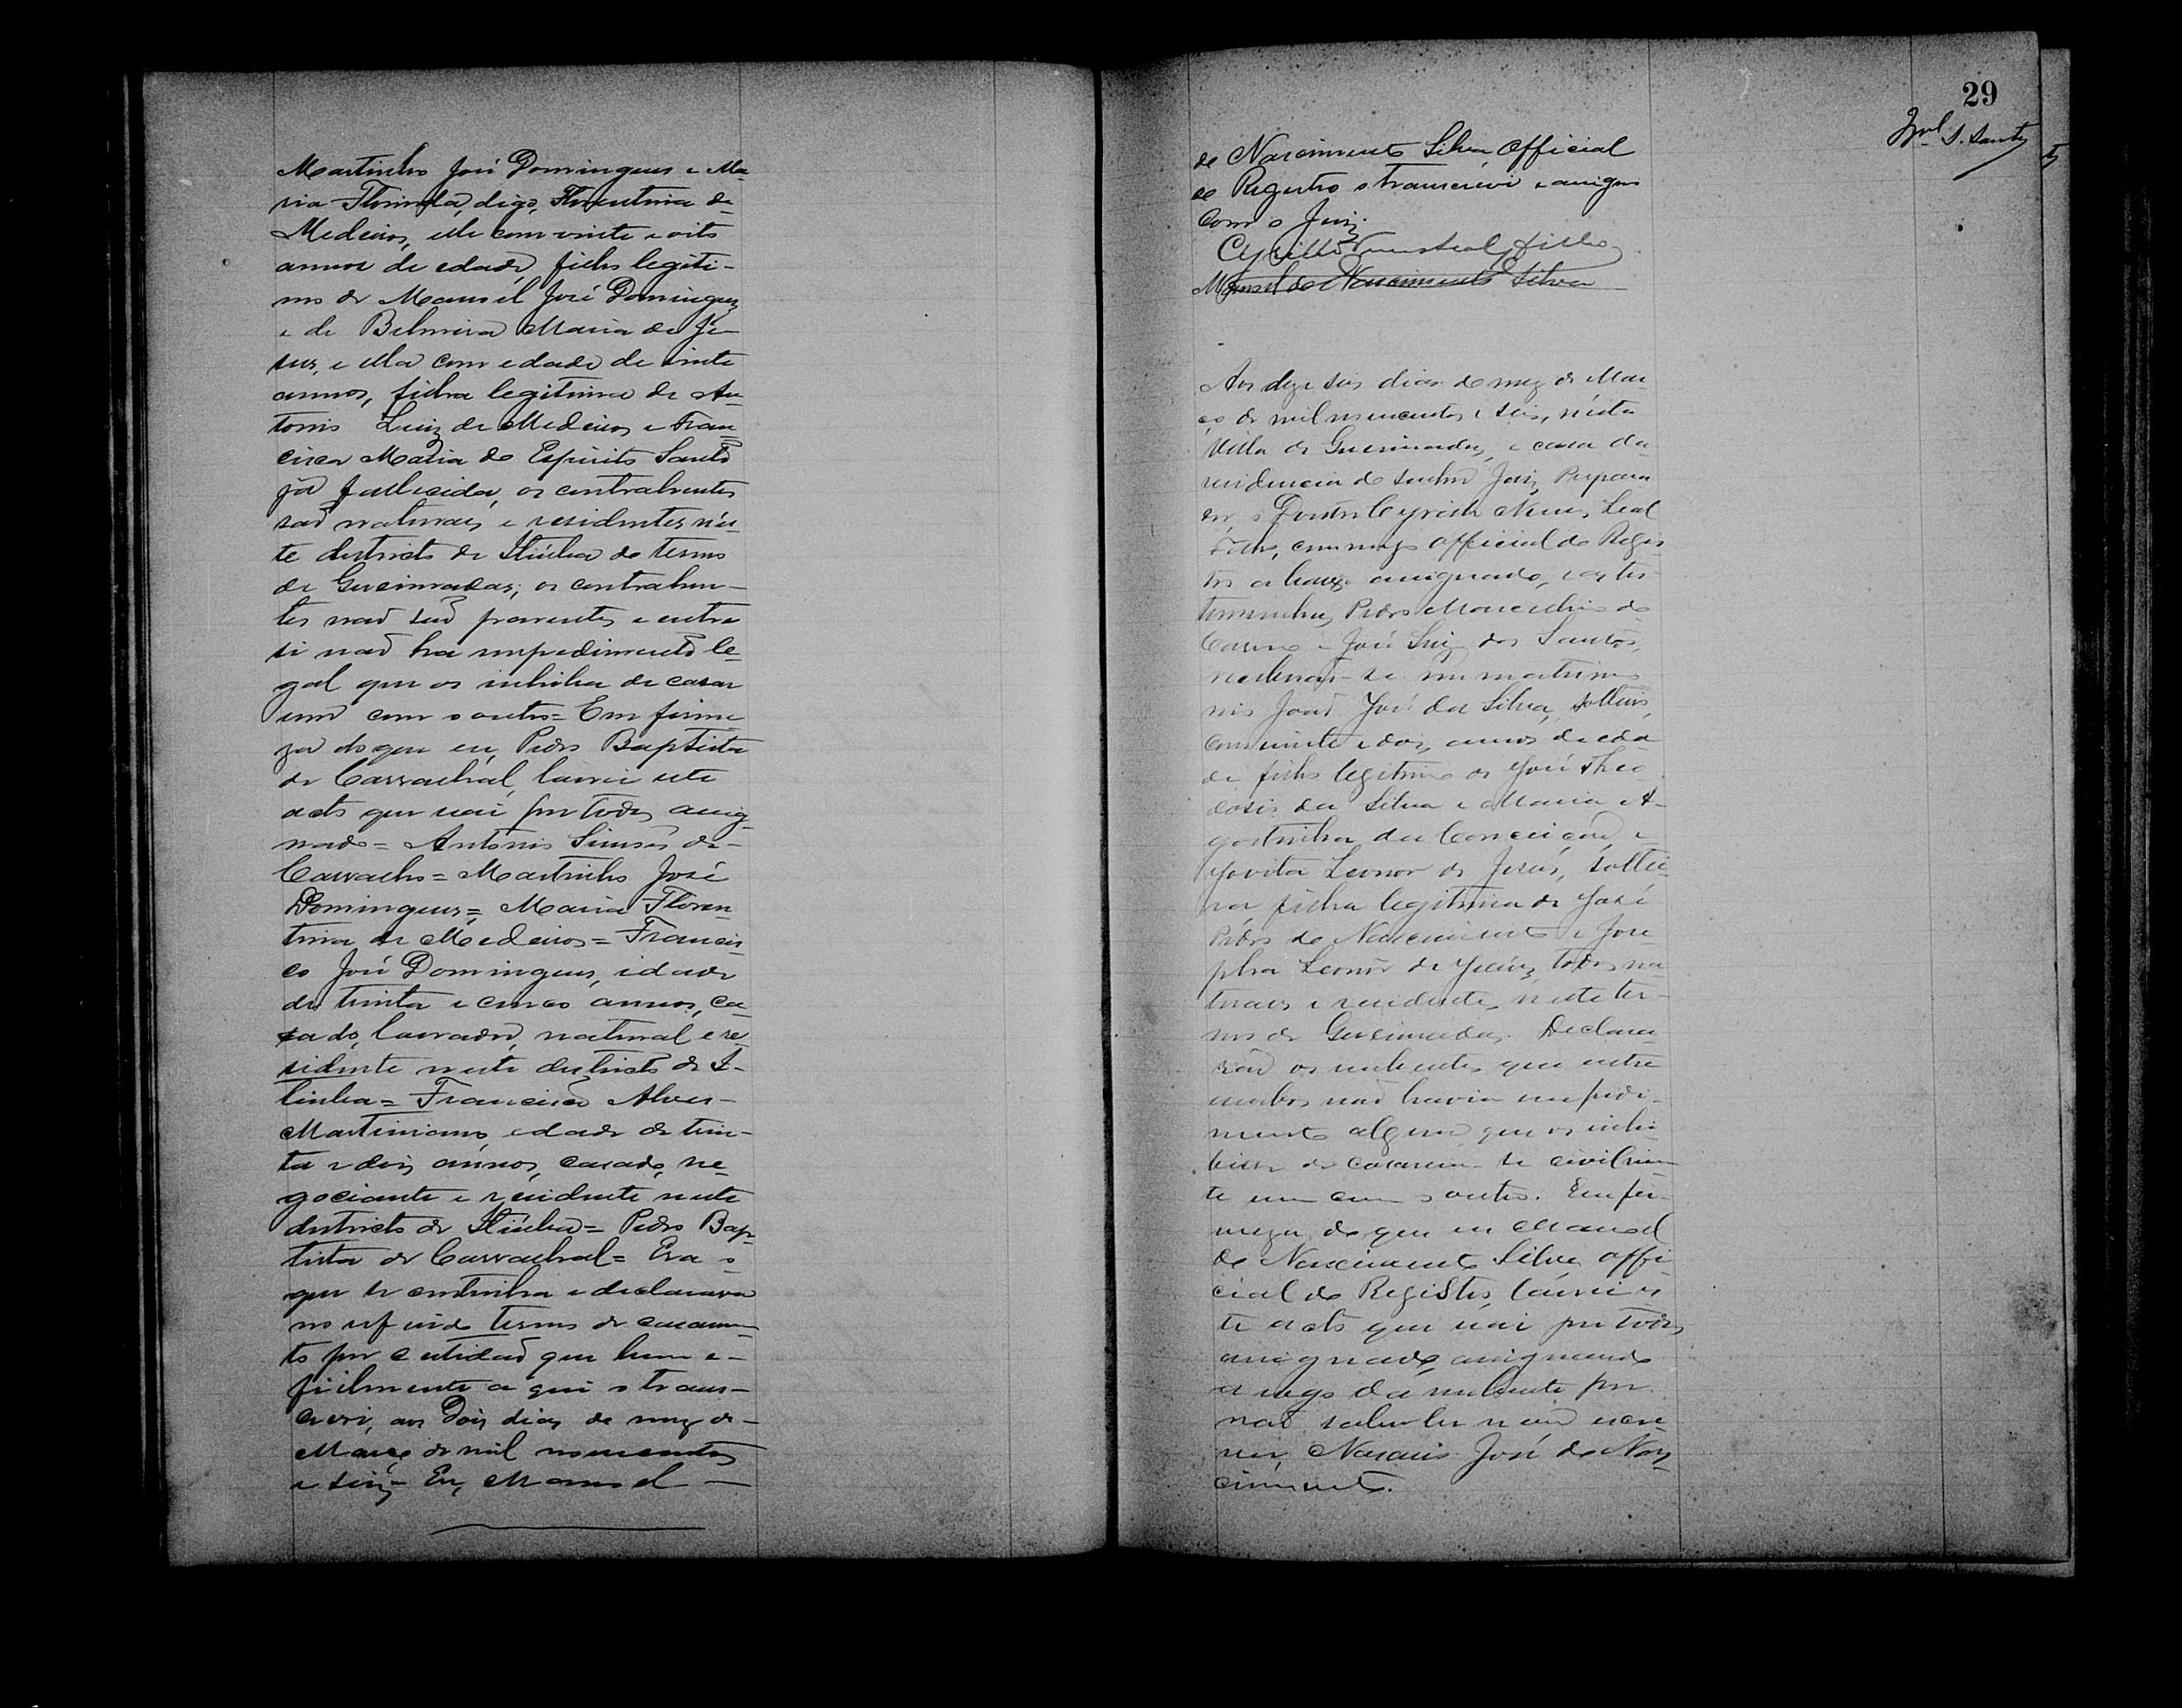 Martinho José Domingues e Ma-
ria Florinda, digo, Florentina de
Medeiros, elle com vinte e oito
annos de edade, filho legiti-
mo de Manoel José Domingues
e de Belmira Maria de Je-
sus, e ella com edade de vinte
annos, filha legitima de An-
tonio Luiz de Medeiros e Fran-
cisca Maria do Espirito Santo
já fallecida, os contrahentes
saõ naturaes e residentes nes-
te districto de Itiúba do termo
de Queimadas; os contrahen-
tes naõ saõ parentes e entre
si naõ ha impedimento le-
gal que os inhiba de casar
um com o outro = Em firme-
za do que eu, Pedro Baptista
de Carvalhal, lavrei este
acto que vai por todos assig-
nado = Antonio Simões de
Carvalho = Martinho José
Domingues = Maria Floren-
tina de Medeiros = Francis-
co José Domingues, idade
de trinta e cinco annos, ca-
sado, lavrador, natural e re-
sidente neste districto de I-
tiuba = Francisco Alves
Martiniano, edade de trin-
ta e dois annos, casado, ne-
gociante e residente neste
districto de Itiúba = Pedro Bap-
tista de Carvalhal = Era o
que se continha e declarava
no referido termo de casamen-
to por certidaõ que bem e
fielmente a qui o trans-
crevi, aos Dois dias do mez de
Março de mil novecentos
e seis = Eu, Manoel
29
S. Santos
do Nascimento Silva Official
do Registro o transcrevi e assigno
Com o Juiz.
Cyrillo Nunes Leal Filho
Manoel do Nascimento Silva
Aos deze seis dias do mez de Mar-
ço de mil novecentos e seis, nesta
Villa de Queimadas, e casa da
residencia do senhor Juiz Prepara-
dor, o Doutor Cyrillo Nunes Leal
Filho, commigo Official do Regis-
tro a baixo assignado, e as tes-
temunhas Pedro Marcelino do
Carmo e José Luiz dos Santos,
receberaõ-se em matrimo-
nio Joaõ José da Silva, solteiro,
com vinte e dois annos de eda-
de filho legitimo de José Theo-
dosio da Silva e Maria A-
gostinha da Conceiçaõ, e
Jovita Leonor de Jesus, soltei-
ra filha legitima de José
Pedro do Nascimento e Jose-
pha Leonor de Jesus, todos na-
turaes e residentes neste ter-
mo de Queimadas. Declara-
raõ os nubentes que entre
ambos naõ havia impedi-
mento algum que os inhi-
bisse de casarem-se civilmen-
te um com o outro. Em fir-
meza do que eu Manoel
do Nascimento Silva Offi-
cial do Registro, lavrei es-
te acto que vai por todos
assignado, assignando
a rogo da nubente por
naõ saber ler nem escre-
ver, Nazario José do Nas-
cimento.